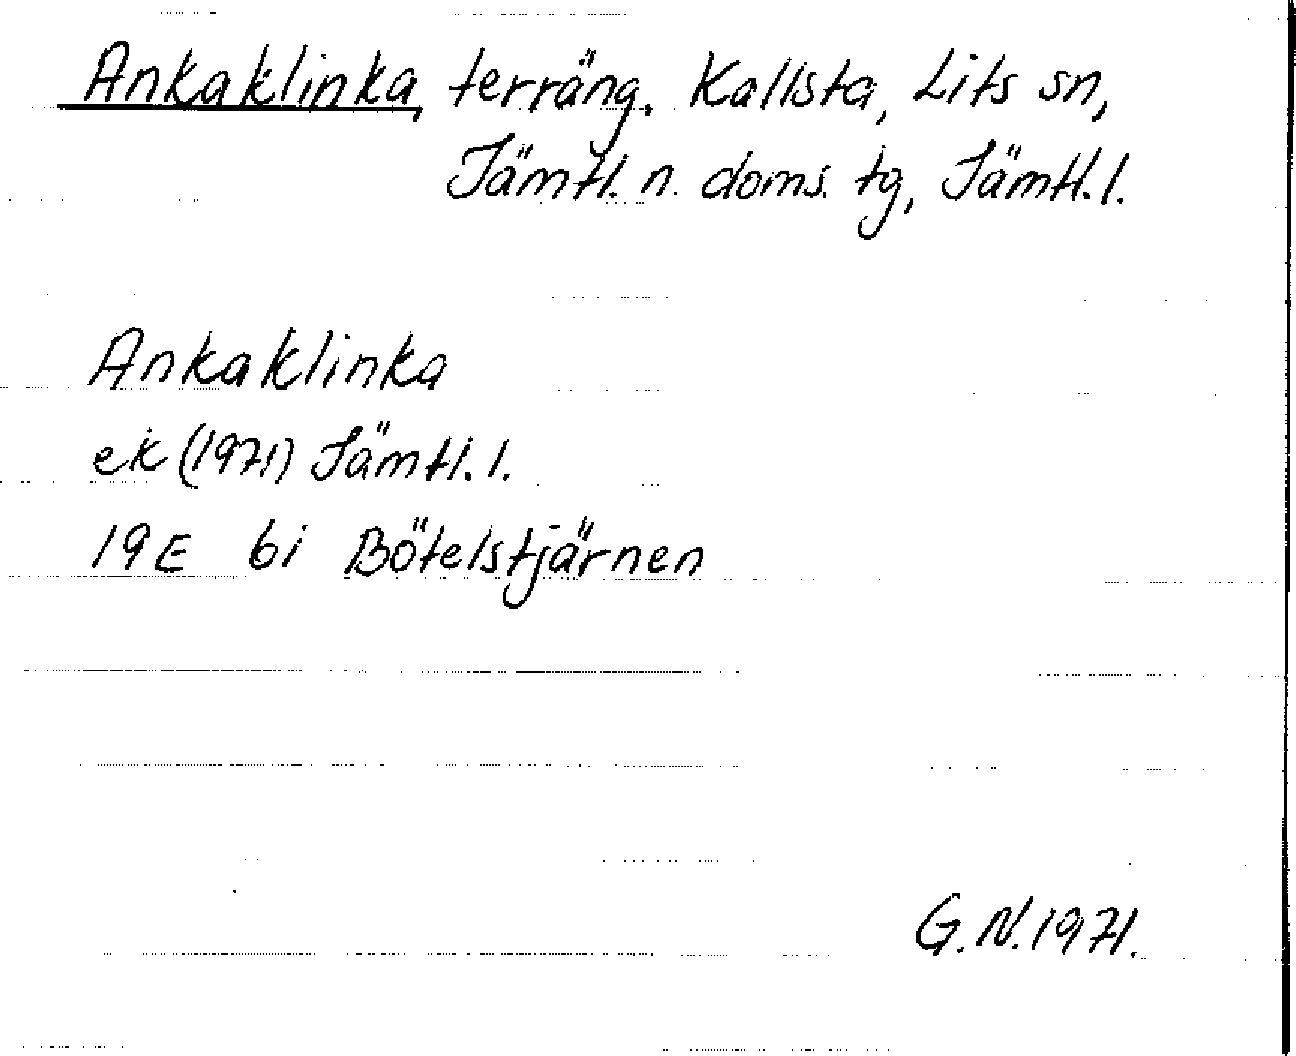 Ankaklinka, terräng. Kallsta, Lits sn,
Jämtl. n. doms. tg, Jämtl. l.
Ankaklinka
ek (1971) Jämtl. l.
19E 6i Bötelstjärnen
G.N. 1971.